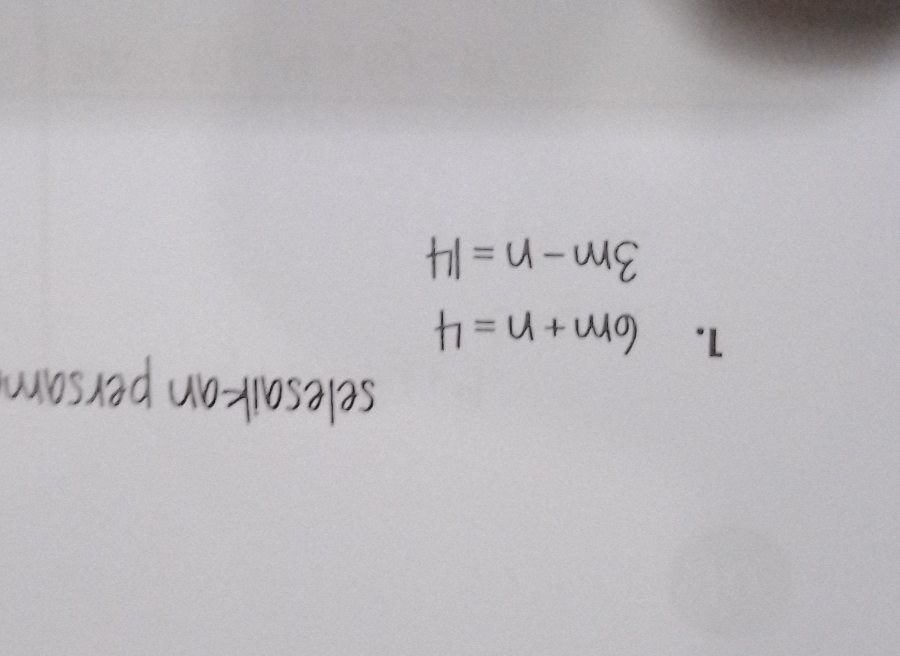 selesaikan
1. 6m + n = 4
3m - n = 14